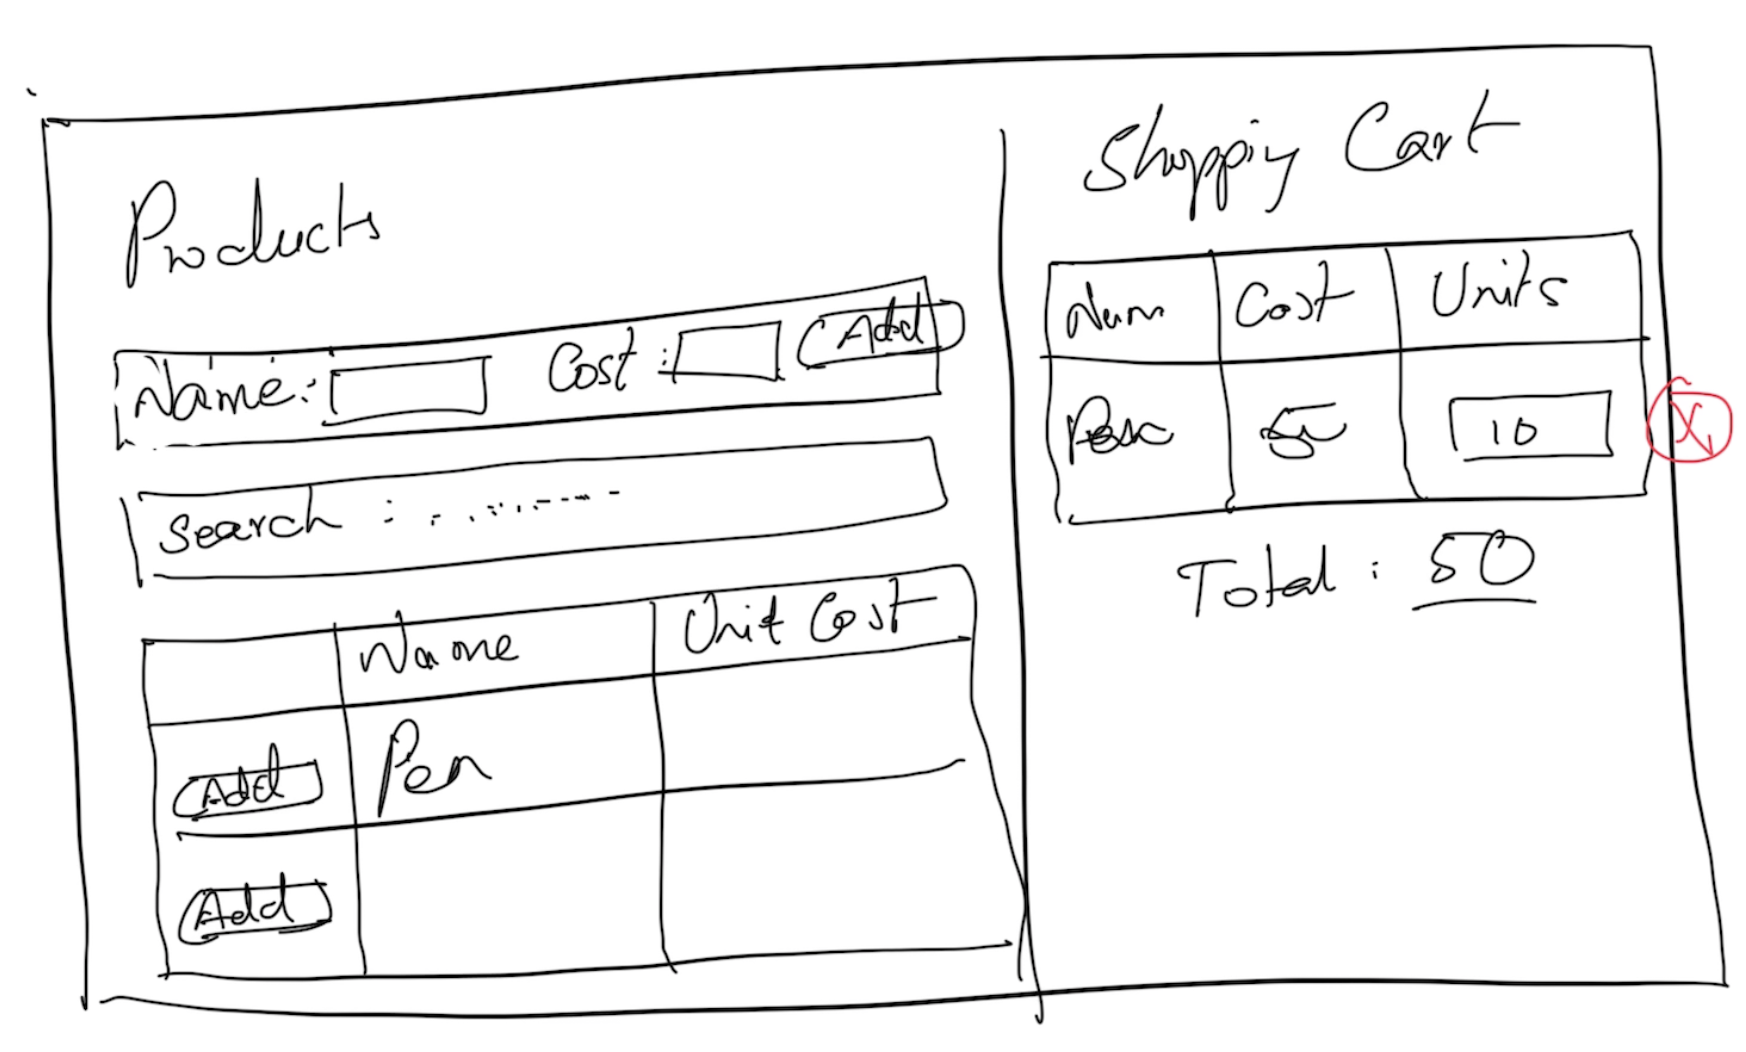 Products
Name: Cost: Add
Search :
Name Unit Cost
Add Pen
Add
Shopping Cart
Cost Units
5 10 X
Total : 50